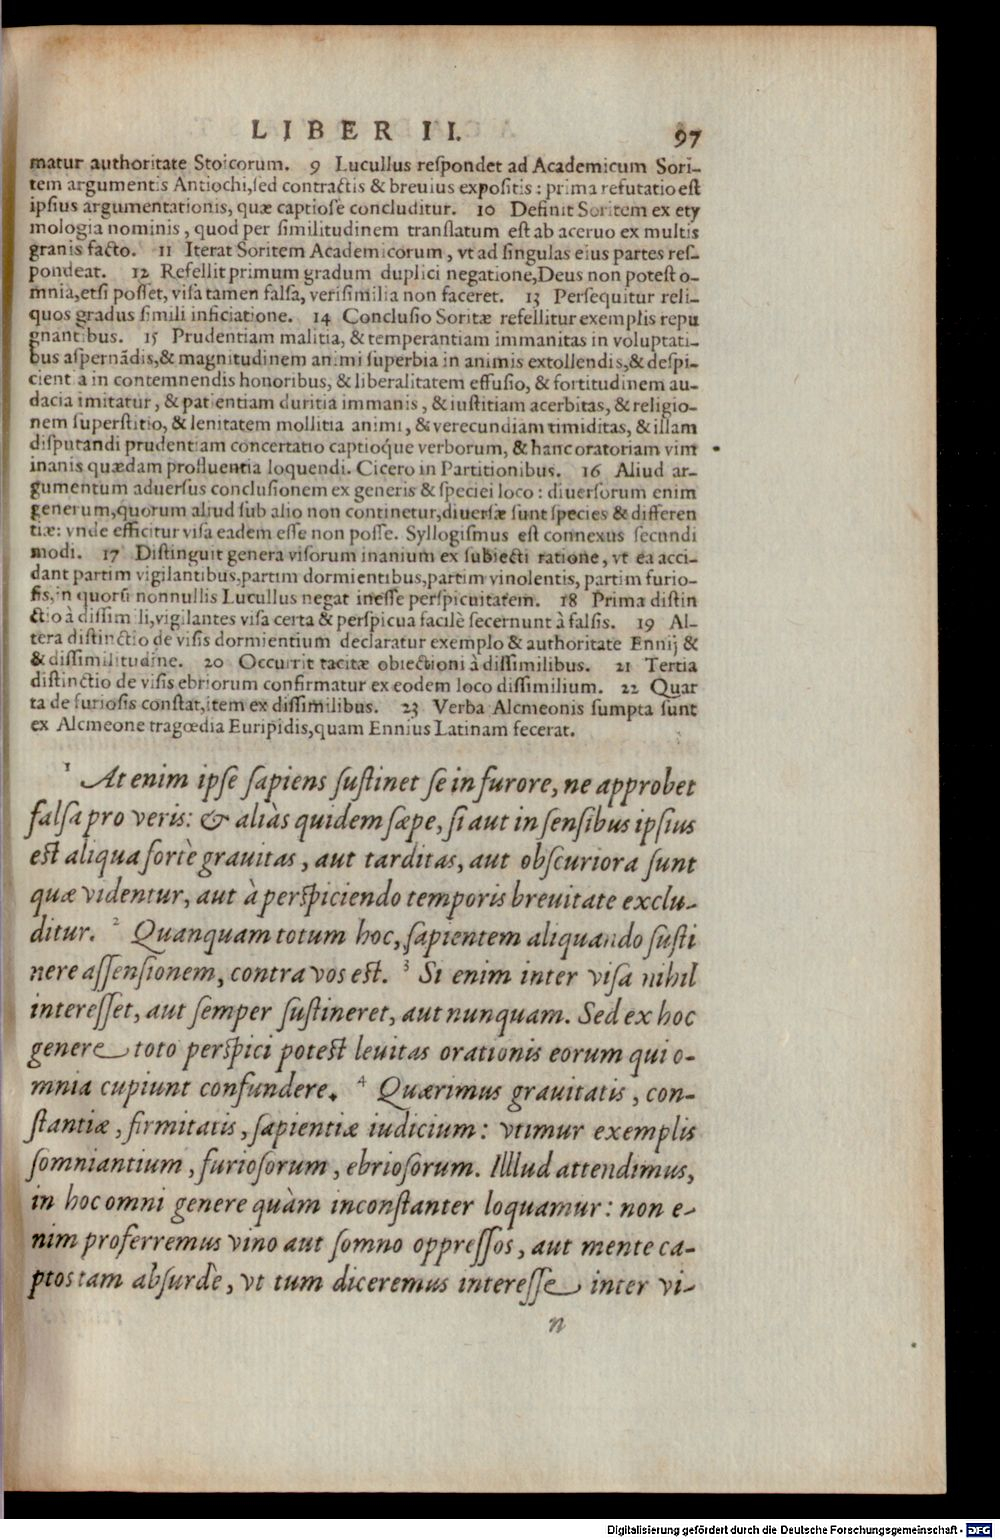 LIBER II. 97
matur authoritate Stoicorum. 9 Lucullus reſpondet ad Academicum Sori-
tem argumentis Antiochi,ſed contractis & breuius expoſitis : prima refutatio eſt
ipſius argumentationis, quæ captiosè concluditur. 10 Definit Soritem ex ety
mologia nominis, quod per ſimilitudinem tranſlatum eſt ab aceruo ex multis
granis facto. 11 Iterat Soritem Academicorum, vt ad ſingulas eius partes reſ-
pondeat. 12 Refellit primum gradum duplici negatione,Deus non poteſt o-
mnia,etſi poſſet, viſa tamen falſa, veriſimilia non faceret. 13 Perſequitur reli-
quos gradus ſimili inficiatione. 14 Concluſio Soritæ refellitur exemplis repu
gnantibus. 15 Prudentiam malitia, & temperantiam immanitas in voluptati-
bus aſpernādis,& magnitudinem animi ſuperbia in animis extollendis,& deſpi-
cientia in contemnendis honoribus, & liberalitatem effuſio, & fortitudinem au-
dacia imitatur, & patientiam duritia immanis, & iuſtitiam acerbitas, & religio-
nem ſuperſtitio, & lenitatem mollitia animi, & verecundiam timiditas, & illam
diſputandi prudentiam concertatio captioq́ue verborum, & hanc oratoriam vim
inanis quædam profluentia loquendi. Cicero in Partitionibus. 16 Aliud ar-
gumentum aduerſus concluſionem ex generis & ſpeciei loco : diuerſorum enim
generum,quorum aliud ſub alio non continetur,diuerſæ ſunt ſpecies & differen
tiæ: vnde efficitur viſa eadem eſſe non poſſe. Syllogiſmus eſt connexus ſecundi
modi. 17 Diſtinguit genera viſorum inanium ex ſubiecti ratione, vt ea acci-
dant partim vigilantibus,partim dormientibus,partim vinolentis, partim furio-
ſis,in quorū nonnullis Lucullus negat ineſſe perſpicuitatem. 18 Prima diſtin
ctio à diſſimili,vigilantes viſa certa & perſpicua facilè ſecernunt à falſis. 19 Al-
tera diſtinctio de viſis dormientium declaratur exemplo & authoritate Ennij &
& diſſimilitudine. 20 Occurrit tacitæ obiectioni à diſſimilibus. 21 Tertia
diſtinctio de viſis ebriorum confirmatur ex eodem loco diſſimilium. 22 Quar
ta de furioſis conſtat,item ex diſſimilibus. 23 Verba Alcmeonis ſumpta ſunt
ex Alcmeone tragœdia Euripidis,quam Ennius Latinam fecerat.
1 At enim ipſe ſapiens ſuſtinet ſe in furore, ne approbet
falſa pro veris: & aliàs quidem ſæpe, ſi aut in ſenſibus ipſius
eſt aliqua fortè grauitas, aut tarditas, aut obſcuriora ſunt
quæ videntur, aut à perſpiciendo temporis breuitate exclu-
ditur. 2 Quanquam totum hoc, ſapientem aliquando ſuſti
nere aſſenſionem, contra vos eſt. 3 Si enim inter viſa nihil
intereſſet, aut ſemper ſuſtineret, aut nunquam. Sed ex hoc
genere toto perſpici poteſt leuitas orationis eorum qui o-
mnia cupiunt confundere. 4 Quærimus grauitatis, con-
ſtantiæ, firmitatis, ſapientiæ iudicium: vtimur exemplis
ſomniantium, furioſorum, ebrioſorum. Illlud attendimus,
in hoc omni genere quàm inconſtanter loquamur: non e-
nim proferremus vino aut ſomno oppreſſos, aut mente ca-
ptos tam abſurdè, vt tum diceremus intereſſe inter vi-
n
Digitalisierung gefördert durch die Deutsche Forschungsgemeinschaft - DFG